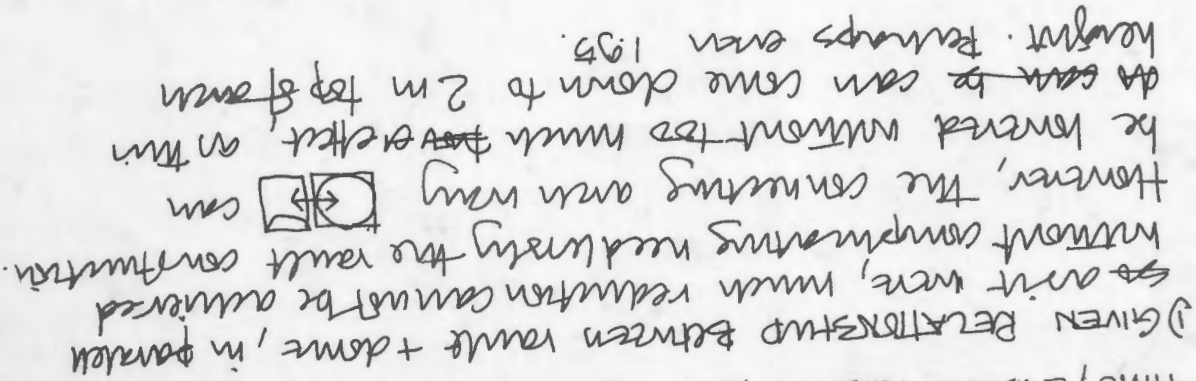 1) GIVEN RELATIONSHIP BETWEEN vault + dome, in parallel
so as it were, much reduction cannot be achieved
without complicating needlessly the vault construction.
However, the connecting arch way can
be lowered without too much effect, as this
can be can come down to 2m top of arch
height. Perhaps even 1.95.